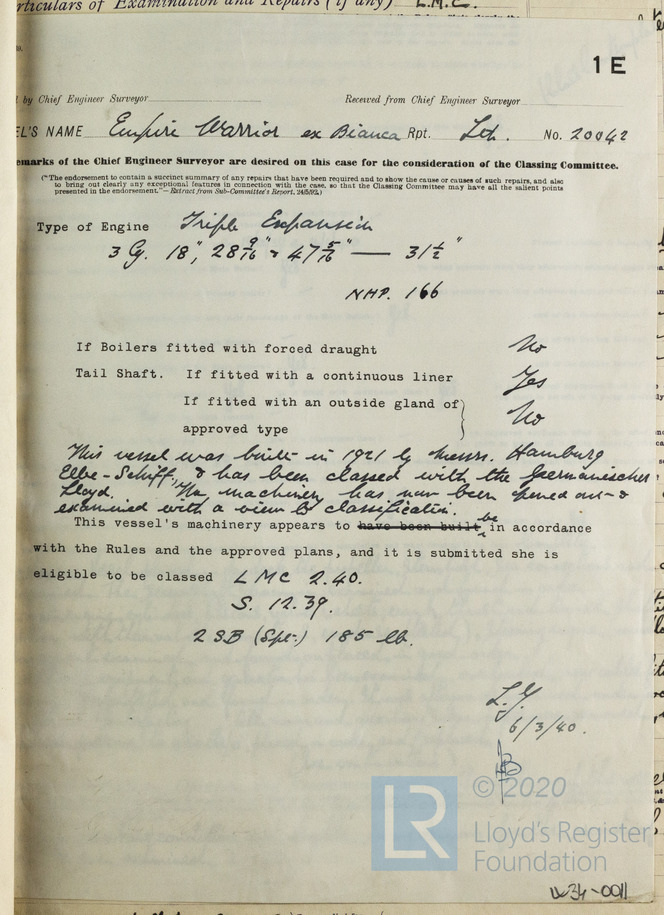 rticulars of Examination and Repairs (if any) L.M.C.
1E
by Chief Engineer Surveyor Received from Chief Engineer Surveyor
EL'S NAME Empire Warrior ex Bianca Rpt. Lth. No. 20042
emarks of the Chief Engineer Surveyor are desired on this case for the consideration of the Classing Committee.
("The endorsement to contain a succinct summary of any repairs that have been required and to show the cause or causes of such repairs, and also
to bring out clearly any exceptional features in connection with the case, so that the Classing Committee may have all the salient points
presented in the endorsement."—Extract from Sub-Committee's Report, 24/5/92.)
Type of Engine Triple Expansion
3 Cy. 18", 28 9/16" & 47 5/16" — 31 1/2"
NHP. 166
If Boilers fitted with forced draught No
Tail Shaft. If fitted with a continuous liner Yes
If fitted with an outside gland of
approved type No
This vessel was built in 1921 by Messrs. Hamburg
Elbe-Schiff, & has been classed with the Germanischer
Lloyd. The machinery has now been opened out &
examined with a view to classification.
This vessel's machinery appears to have been built be in accordance
with the Rules and the approved plans, and it is submitted she is
eligible to be classed LMC 2.40.
S. 12.39.
2SB (Spt.) 185 lb.
L.Y.
6/3/40.
LR © 2020
Lloyd's Register
Foundation
W34-0011